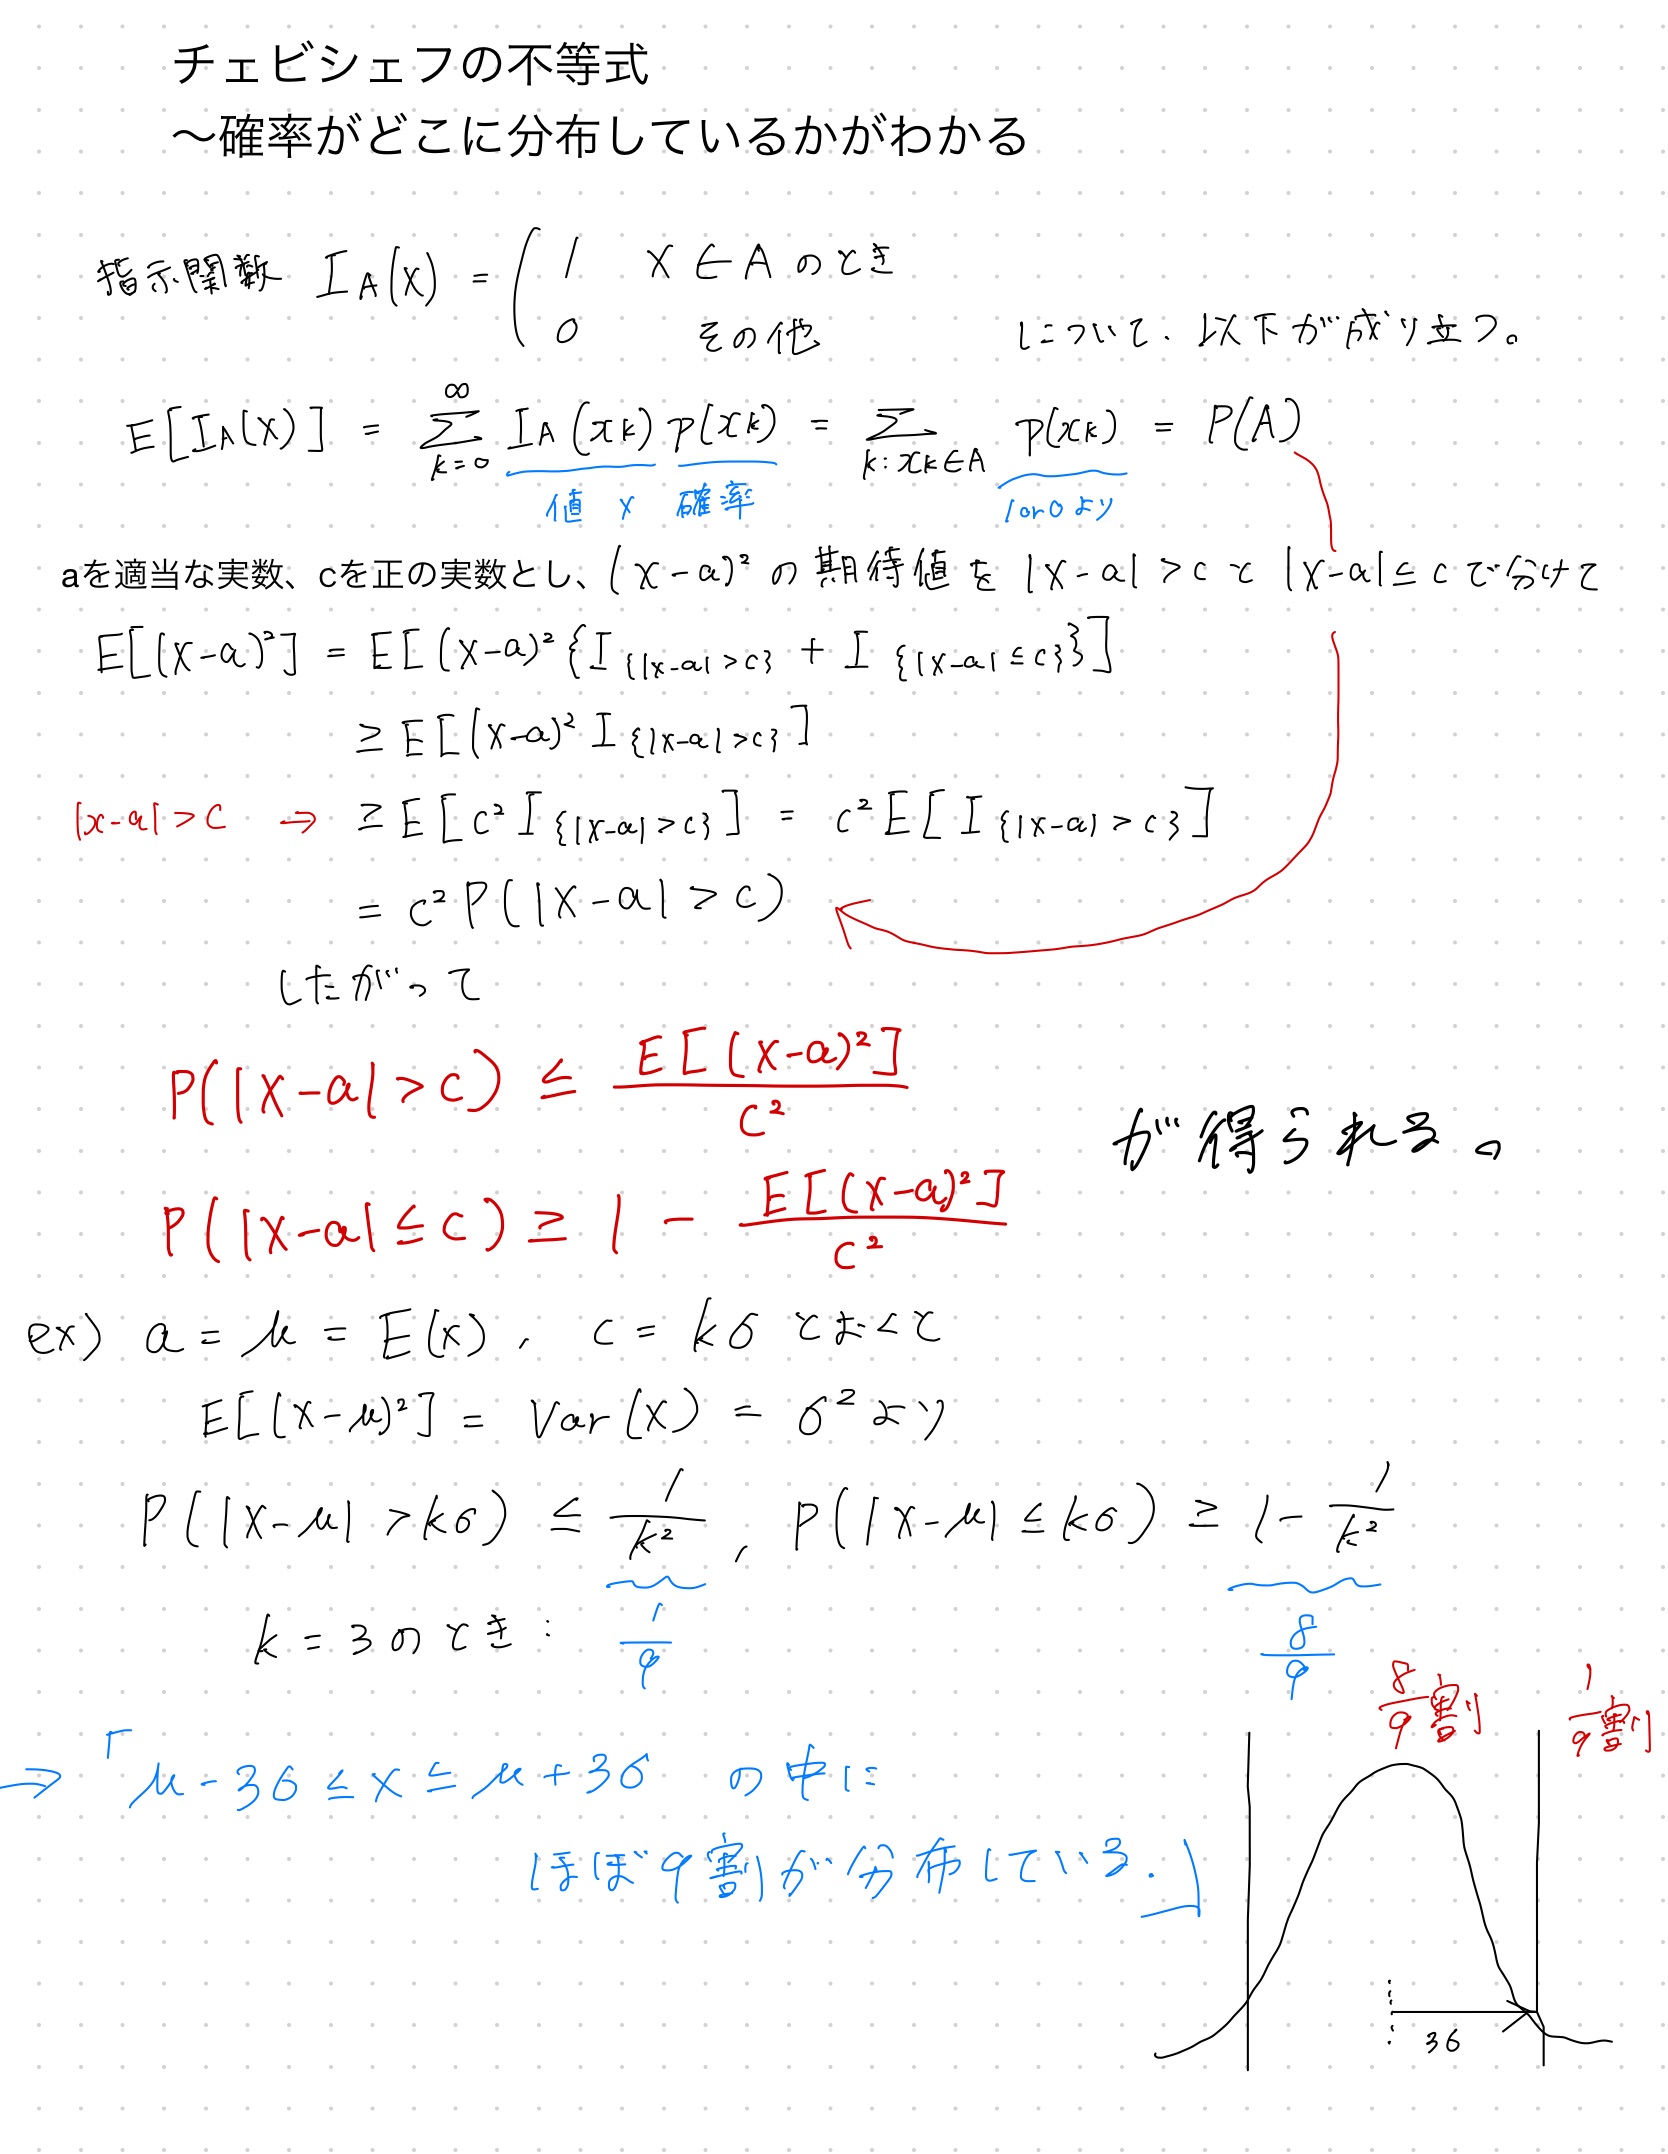 チェビシェフの不等式
～確率がどこに分布しているかがわかる
指示関数 I_A(X) = ( 1 X ∈ A のとき
0 その他 について、以下が成り立つ。
E[I_A(X)] = Σ_{k=0}^{∞} I_A(x_k) p(x_k) = Σ_{k:x_k∈A} p(x_k) = P(A)
値 × 確率 1 or 0 より
aを適当な実数、cを正の実数とし、(X-a)² の期待値を |X-a| > c と |X-a| ≤ c で分けて
E[(X-a)²] = E[(X-a)² {I_{|X-a|>c} + I_{|X-a|≤c}}]
≥ E[(X-a)² I_{|X-a|>c}]
|x-a| > c → ≥ E[c² I_{|X-a|>c}] = c² E[I_{|X-a|>c}]
= c² P(|X-a| > c)
したがって
P(|X-a| > c) ≤ E[(X-a)²] / c²
が得られる。
P(|X-a| ≤ c) ≥ 1 - E[(X-a)²] / c²
ex) a = μ = E(X), c = kσ とおくと
E[(X-μ)²] = Var(X) = σ² より
P(|X-μ| > kσ) ≤ 1/k², P(|X-μ| ≤ kσ) ≥ 1 - 1/k²
k = 3 のとき: 1/9 8/9
8/9割 1/9割
→ 「μ - 3σ ≤ X ≤ μ + 3σ の中に
ほぼ9割が分布している.」
3σ